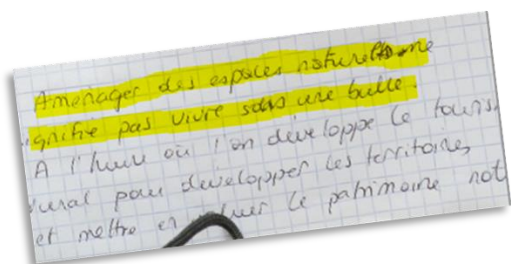 Aménager des espaces naturels ne
ignifie pas vivre sous une bulle.
A l'heure où l'on développe le touris
rural pour développer les territoires
et mettre en le patrimoine nat